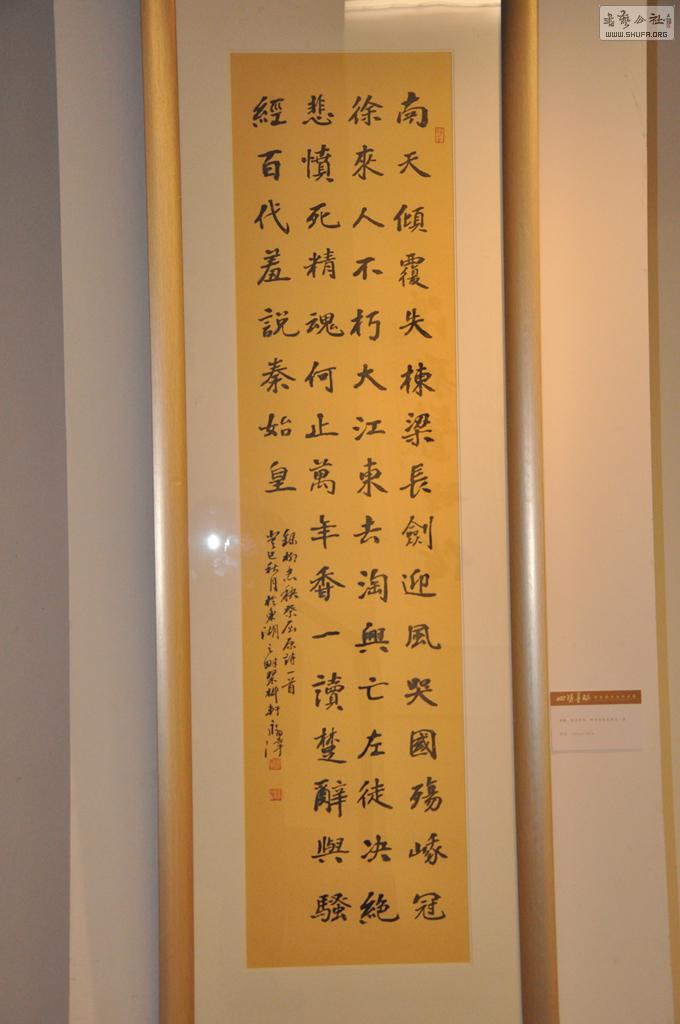 南天傾覆失棟梁長劍迎風哭國殤峨冠
徐來人不朽大江東去淘興亡左徒決絕
悲憤死精魂何止萬年香一讀楚辭與騷
經百代羞說秦始皇
錄柳忠秧祭屈原詩一首
癸巳秋月於東湖之畔翠柳軒
WWW.SHUFA.ORG